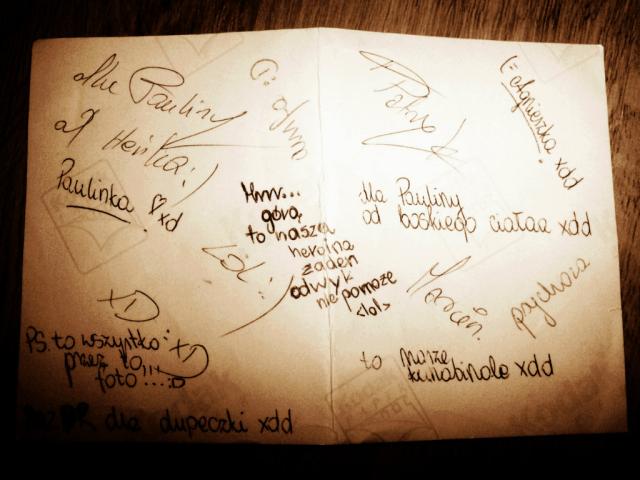 dla Pauliny
od Heńka:)
Paulinka ♡xd
Hmm...
góra,
to nasza
heroina
żaden
odwyk
nie pomoże
<lol>
Lol:)
XD
PS. to wszystko
przez to...
foto...:D
XD
dla dupeczki xdd
Patryk
(: Agnieszka xdd
dla Pauliny
od boskiego ciałaa xdd
Marcin.
psychoza
to nasze
xdd